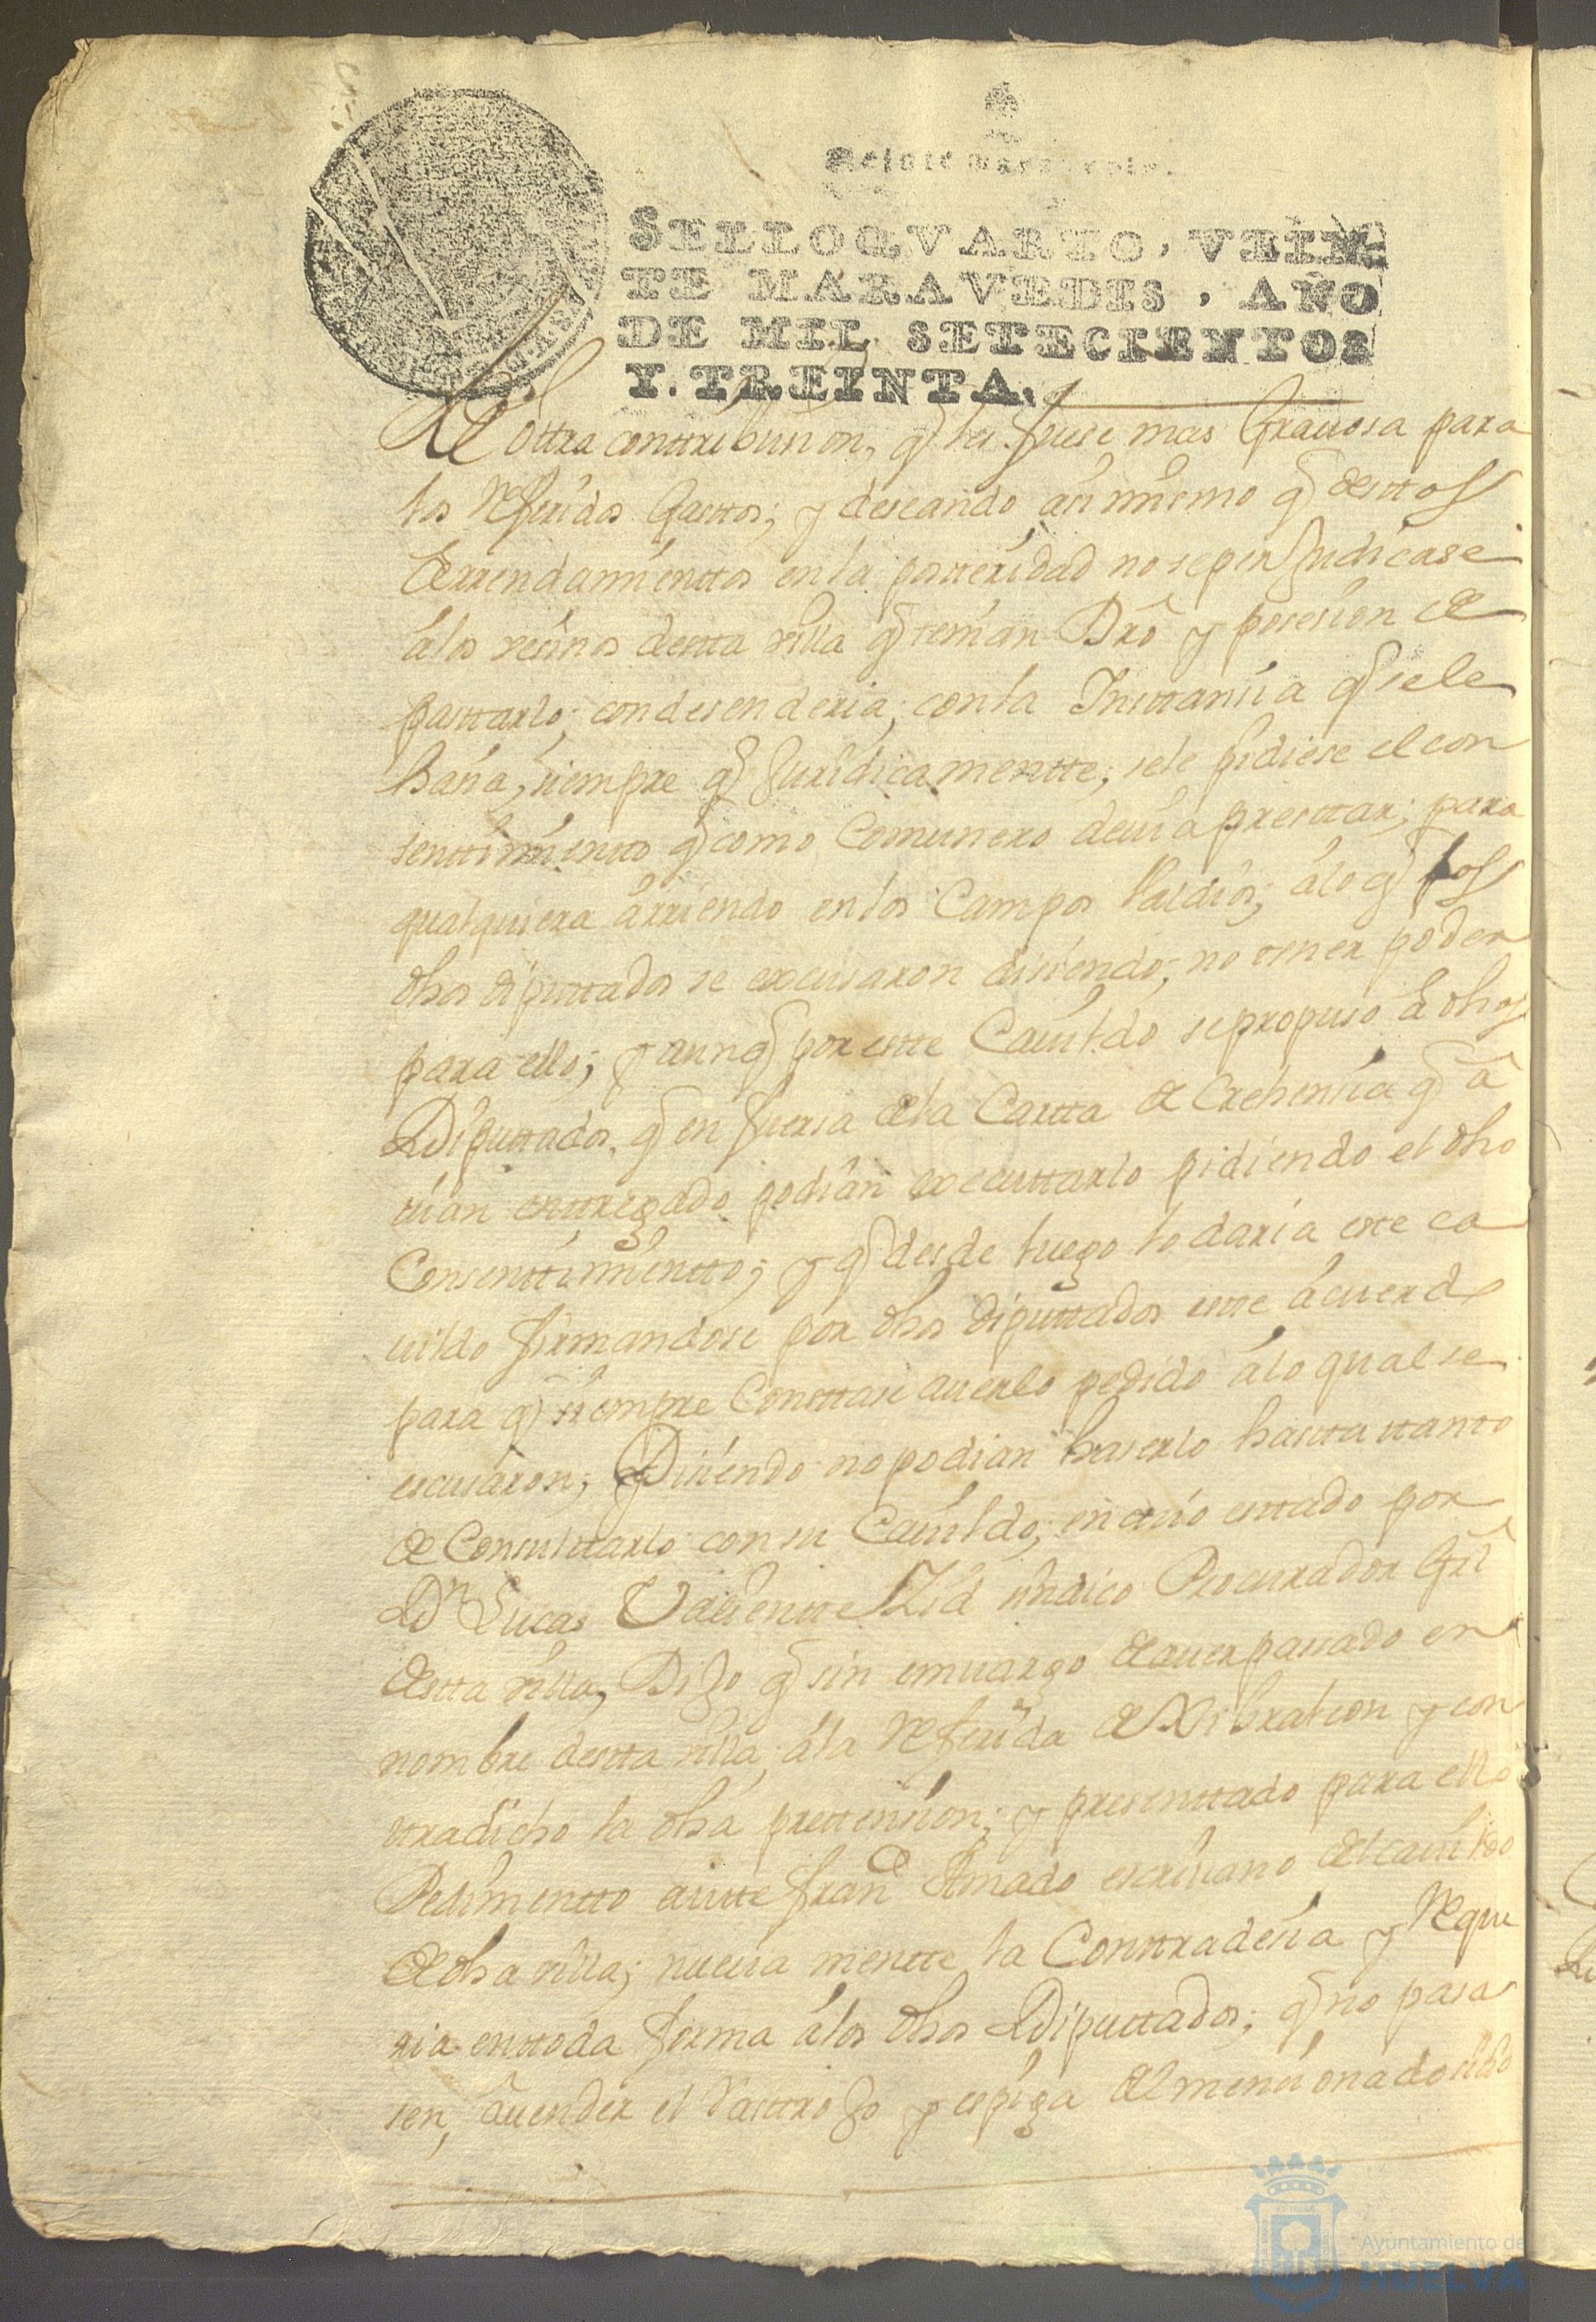 Veinte maravedis.
SELLO QVARTO, VEIN-
TE MARAVEDIS, AÑO
DE MIL SETECIENTOS
Y. TREINTA.
de ottra conttribusion, q̃ les fuese mas Grauosa para
los Referidos Gasttos; y deseando asi mismo q̃ destos
Arrendamienttos en la postteridad no se perjudicase
á los vesinos de estta villa q̃ tenian Dr̃o y posesion de
pasttarlo; condesenderia, con la Insttansia q̃ se le
hasia, siempre q̃ Juridicamentte; se le pidiese el con
senttimientto q̃ como Comunero deuia presttar; para
qualquiera arriendo en los Campos Valdios; á lo q̃ los
dhos diputtados se excusaron disiendo; no tener poder
para ello; y aunq̃ por estte Cauildo se propuso á dhos
Diputtados, q̃ en fuersa de la Cartta de Crehensia q̃ a
uian enttregado podian executtarlo pidiendo el dho
Consenttimientto; y q̃ desde luego lo daria este ca
uildo firmandose por dhos diputtados este acuerdo
para q̃ siempre Consttase auerlo pedido á lo qual se
escusaron; Disiendo no podian haserlo hastta ttanto
de Consulttarlo con su Cauildo; en cuio esttado por
Dn Lucas Valientte sindico Procurador Grl̃
de estta villa, Dijo q̃ sin emuargo de auer pasado en
nombre destta villa, á la Referida de Xibraleon y con
ttradicho la dha prettension; y presenttado para ello
Pedimentto antte Franco Amado escriuano del cauildo
de dha villa; nueua mentte la Conttradesia y Reque
ria en ttoda forma á los dhos Diputtados; q̃ no pasa
sen, á uender el Rasttrojo y espiga del mensionado sitio
Ayuntamiento de
HUELVA